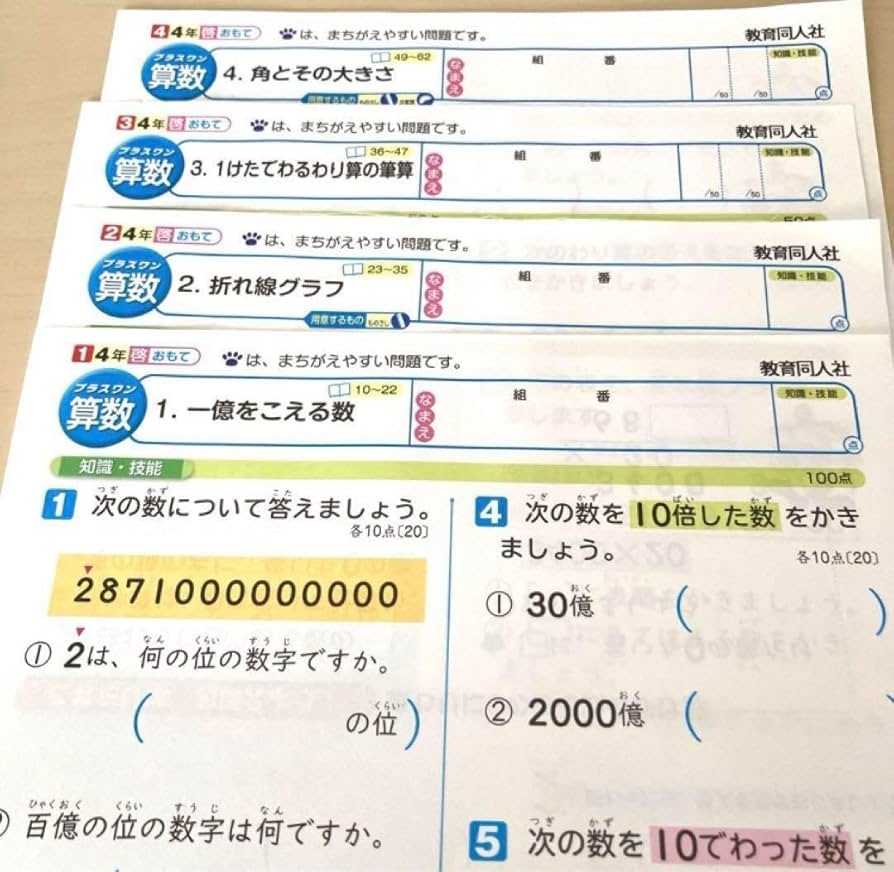 4 4年 啓 おもて は、まちがえやすい問題です。 教育同人社
プラスワン 算数 4. 角とその大きさ 49~62 なまえ 組 番 知識・技能
用意するもの ものさし /50 /50 点
3 4年 啓 おもて は、まちがえやすい問題です。 教育同人社
プラスワン 算数 3. 1けたでわるわり算の筆算 36~47 なまえ 組 番 知識・技能
/50 /50 点
50点
2 4年 啓 おもて は、まちがえやすい問題です。 教育同人社
プラスワン 算数 2. 折れ線グラフ 23~35 なまえ 組 番 知識・技能
用意するもの ものさし 点
1 4年 啓 おもて は、まちがえやすい問題です。 教育同人社
プラスワン 算数 1. 一億をこえる数 10~22 なまえ 組 番 知識・技能
点
知識・技能 100点
1 次の数について答えましょう。
つぎ かず こた
各10点〔20〕
2871000000000
① 2は、何の位の数字ですか。
なん くらい すうじ
( の位)
くらい
百億の位の数字は何ですか。
ひゃくおく くらい すうじ なん
4 次の数を10倍した数をかき
つぎ かず ばい かず
ましょう。 各10点〔20〕
① 30億 ( )
おく
② 2000億 (
おく
5 次の数を10でわった数を
つぎ かず かず